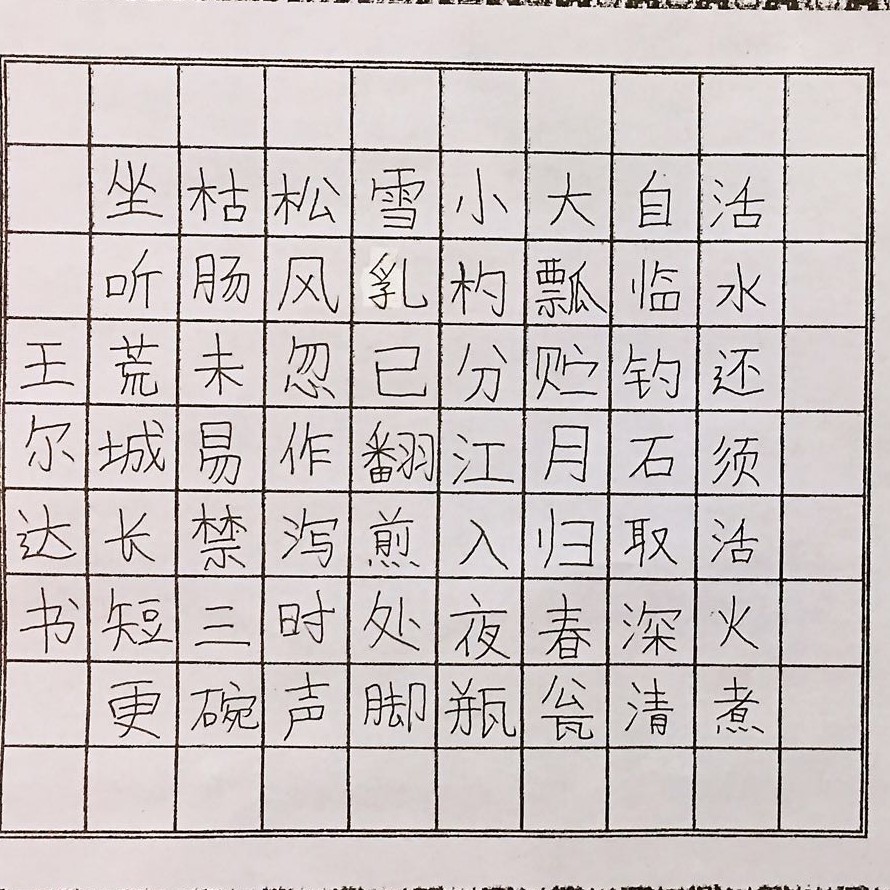 活水还须活火煮
自临钓石取深清
大瓢贮月归春瓮
小杓分江入夜瓶
雪乳已翻煎处脚
松风忽作泻时声
枯肠未易禁三碗
坐听荒城长短更
王尔达书